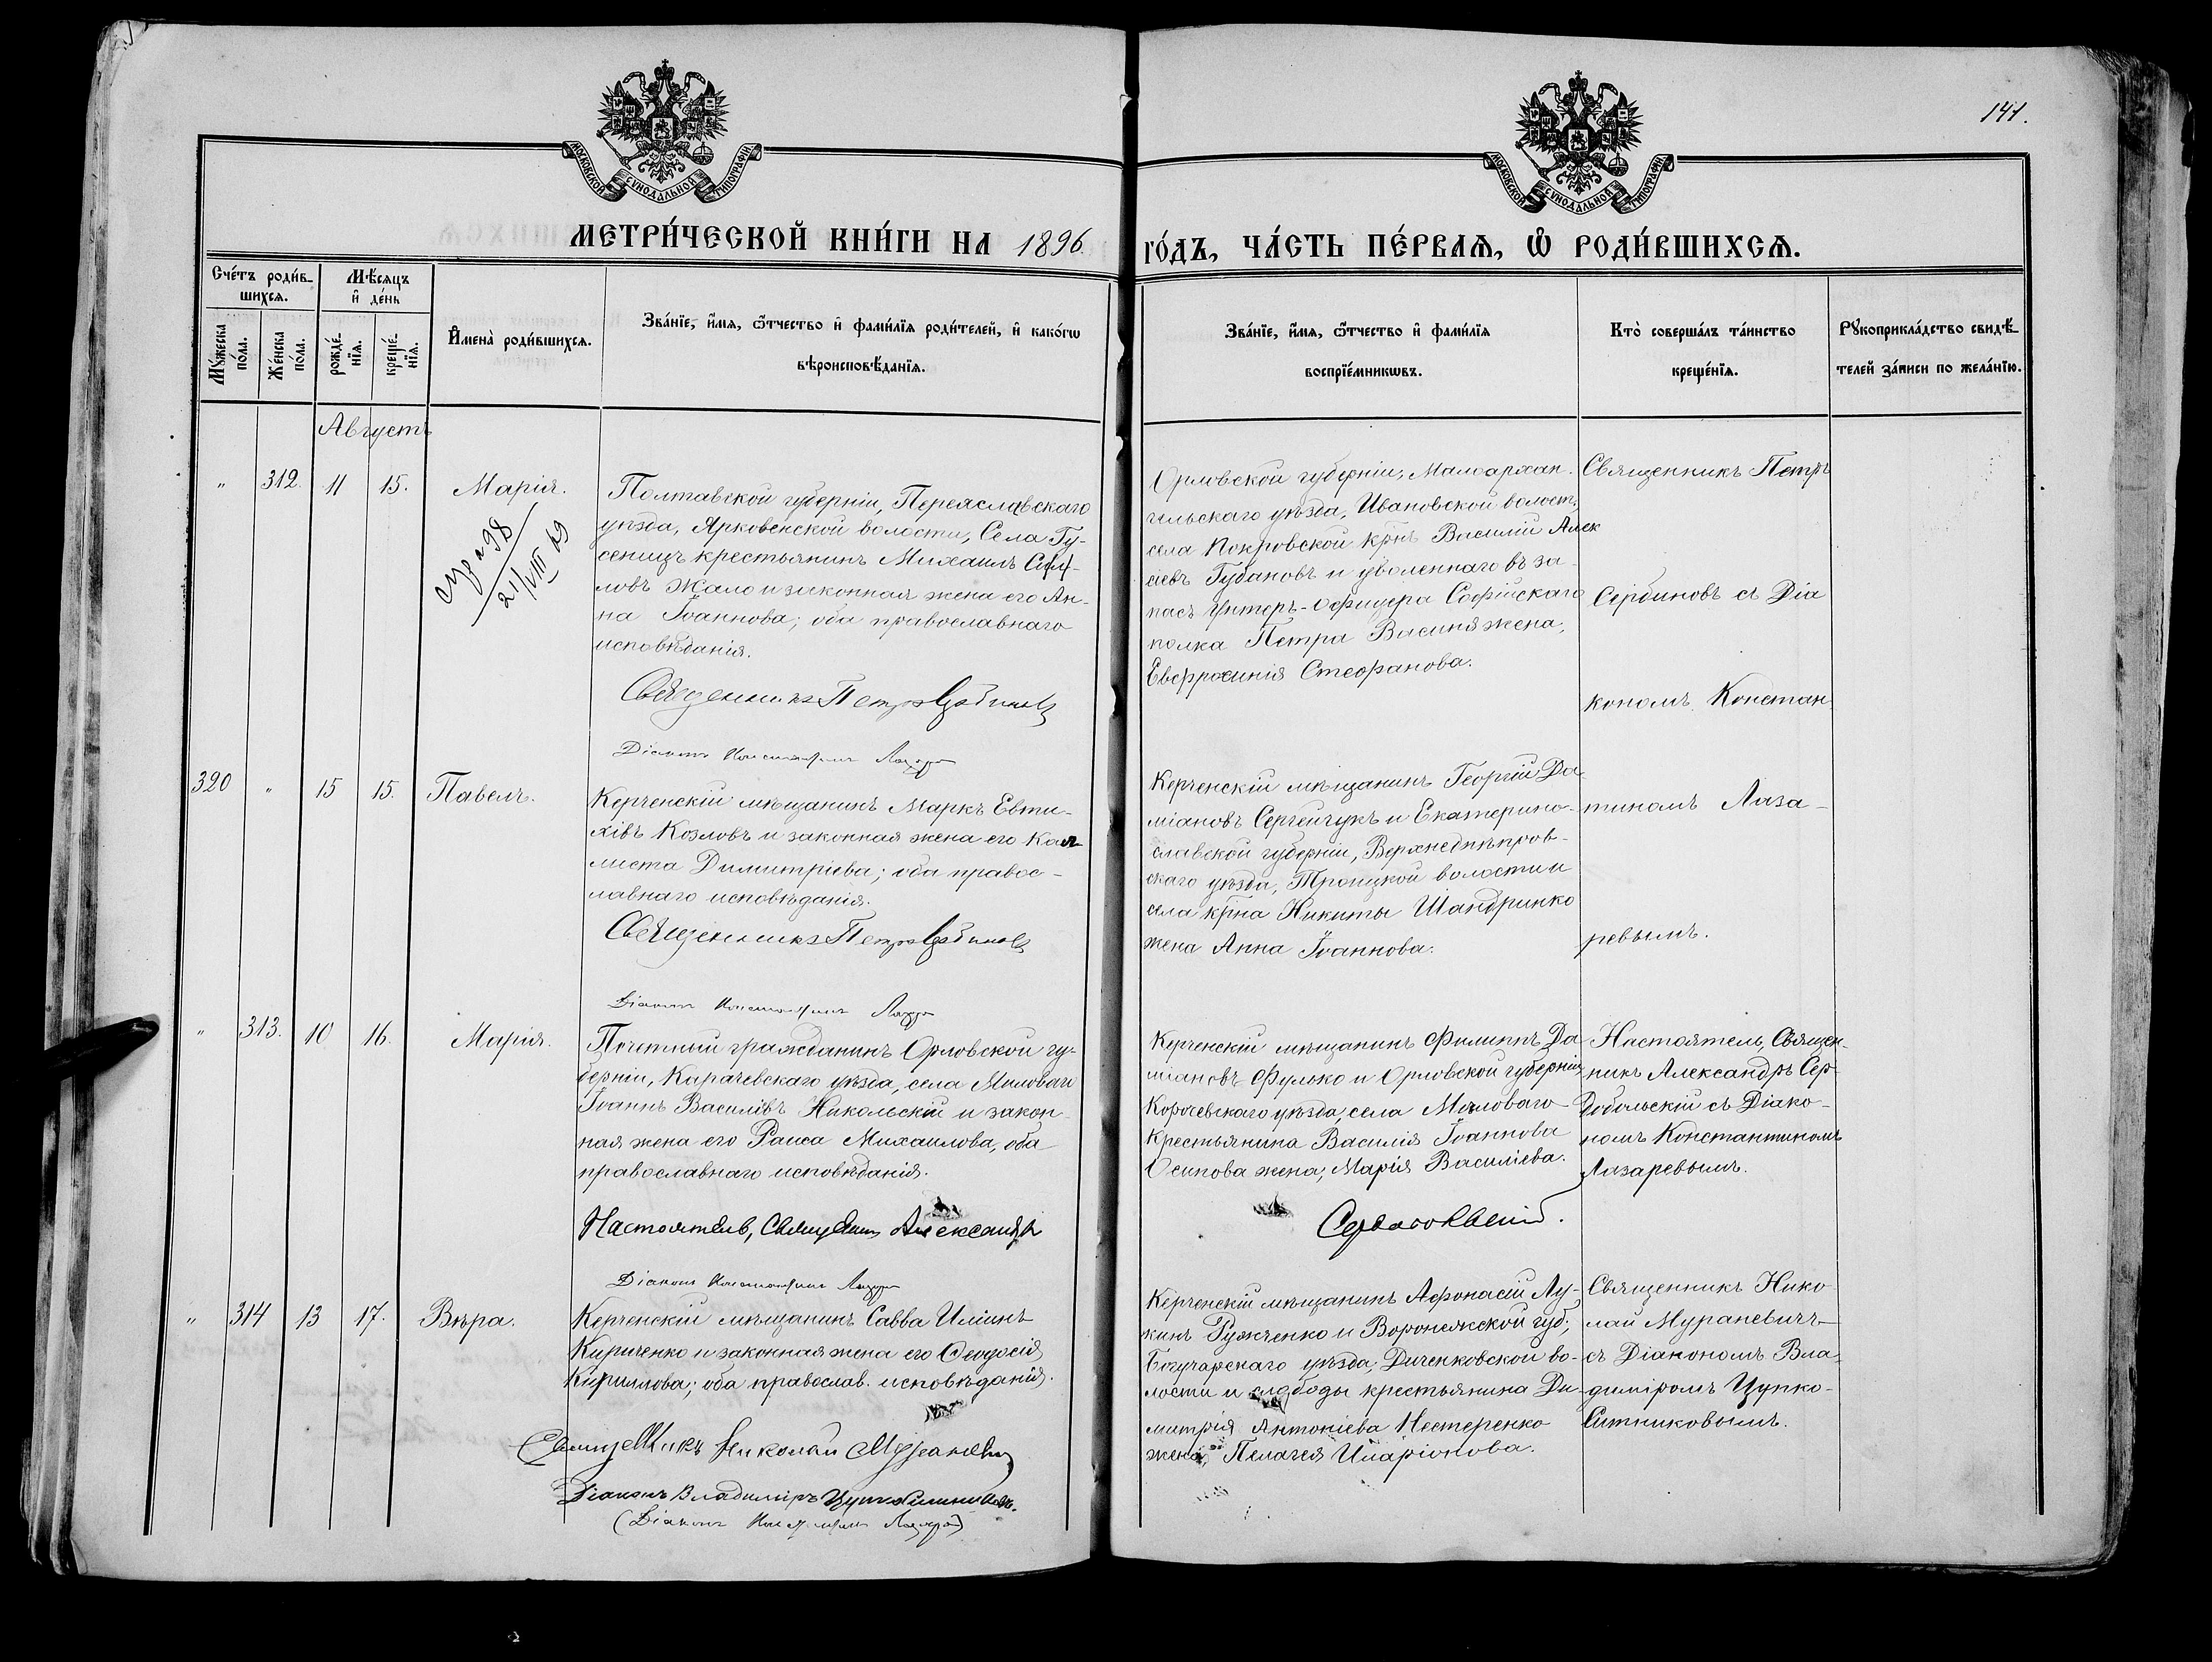 141.
МОСКОВСКОЙ СѴНОДАЛЬНОЙ ТИПОГРАФІИ
МОСКОВСКОЙ СѴНОДАЛЬНОЙ ТИПОГРАФІИ
МЕТРИ́ЧЕСКОЙ КНИ́ГИ НА 1896.
ГО́ДЪ, ЧА́СТЬ ПЕ́РВАѦ, Ѿ РОДИ́ВШИХСѦ.
Сче́тъ роди́в-
шихсѧ.
Мꙋ́жеска
по́ла.
Же́нска
по́ла.
Мѣ́сѧцъ
и҆ де́нь
рожде́-
нїѧ.
креще́-
нїѧ.
И҆мена̀ роди́вшихсѧ.
Зва́нїе, и҆́мѧ, ѻ҆́тчество и҆ фами́лїѧ роди́телей, и҆ како́гѡ
вѣроисповѣ́данїѧ.
Зва́нїе, и҆́мѧ, ѻ҆́тчество и҆ фами́лїѧ
воспрїе́мникѡвъ.
Кто̀ соверша́лъ та́инство
креще́нїѧ.
Рꙋкоприкла́дство свидѣ́-
телей за́писи по жела́нїю.
Августъ
" 312. 11 15. Марія.
21/VIII 49
Полтавской губерніи, Переяславскаго
уѣзда, Ярковенской волости, Села Гу-
сеницъ крестьянинъ Михаилъ
ловъ Жало и законная жена его Ан-
на Іоаннова; оба православнаго
исповѣданія.
Священникъ Петръ Сербиновъ
Діаконъ Константинъ Лазаревъ
Орловской губерніи, Малоархан-
гельскаго уѣзда, Ивановской волости,
села Покровской крнъ Василій Алек
сіевъ Губановъ и уволеннаго въ за-
пасъ Унтеръ-Офицера Софійскаго
полка Петра Васина жена,
Евфросинія Стефанова.
Священникъ Петръ
Сербиновъ съ Діа
кономъ Констан-
тиномъ Лаза-
ревымъ.
320 " 15 15. Павелъ.
Керченскій мѣщанинъ Маркъ Евти-
хіевъ Козловъ и законная жена его Кал-
листа Димитріева; оба правос-
лавнаго исповѣданія.
Священникъ Петръ Сербиновъ
Діаконъ Константинъ Лазаревъ
Керченскій мѣщанинъ Георгій Да-
міановъ Сергейчукъ и Екатерино-
славской губерніи, Верхнеднѣпров-
скаго уѣзда, Троицкой волости и
села крна Никиты Шандринко
жена Анна Іоаннова.
" 313. 10 16. Марія.
Почетный гражданинъ Орловской гу-
берніи, Карачевскаго уѣзда, села Миловаго
Іоаннъ Василіевъ Никольскій и закон-
ная жена его Раиса Михаилова, оба
православнаго исповѣданія.
Настоятель, Священникъ Александръ
Сердобольскій.
Діаконъ Константинъ Лазаревъ
Керченскій мѣщанинъ Филиппъ Да-
міановъ Фулько и Орловской губерніи
Корочевскаго уѣзда, села Миловаго
Крестьянина Василія Іоаннова
Осипова жена, Марія Василіева.
Настоятель, Священ-
никъ Александръ Сер-
добольскій съ Діако-
номъ Константиномъ
Лазаревымъ.
" 314 13 17. Вѣра.
Керченскій мѣщанинъ Савва Иліинъ
Кириченко и законная жена его Ѳеодосія
Кириллова; оба православ. исповѣданія.
Священникъ Николай Мураневичъ
Діаконъ Владиміръ Цупко-Ситниковъ.
(Діаконъ Константинъ Лазаревъ)
Керченскій мѣщанинъ Афонасій Лу-
кинъ Ружченко и Воронежской губ.,
Богучарскаго уѣзда, Диченковской во-
лости и слободы крестьянина Ди-
митрія Антоніева Нестеренко
жена, Пелагея Иларіонова.
Священникъ Нико-
лай Мураневичъ
съ Діакономъ Вла-
диміромъ Цупко-
Ситниковымъ.